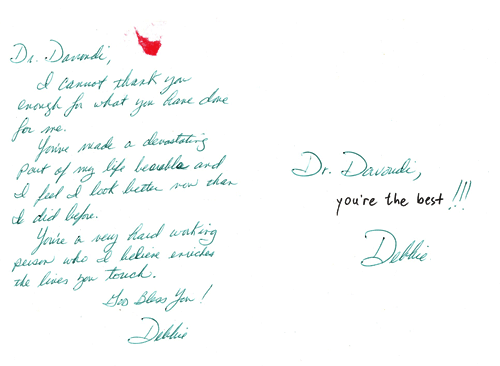 Dr. Davoudi,
I cannot thank you
enough for what you have done
for me.
You've made a devastating
part of my life bearable and
I feel I look better now than
I did before.
You're a very hard working
person who I believe enriches
the lives you touch.
God Bless You!
Debbie
Dr. Davoudi,
you're the best!!!
Debbie